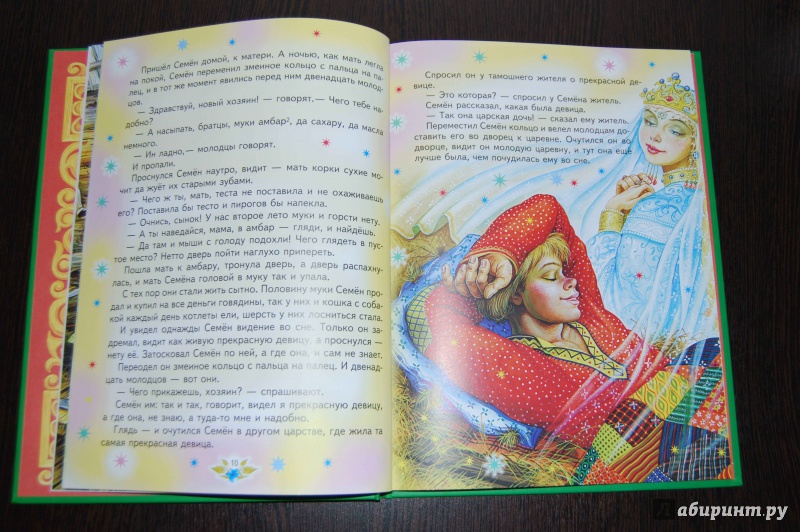 Пришёл Семён домой, к матери. А ночью, как мать легла
на покой, Семён переменил змеиное кольцо с пальца на па-
лец, и в тот же момент явились перед ним двенадцать молод-
цов.
— Здравствуй, новый хозяин! — говорят.— Чего тебе на-
добно?
— А насыпать, братцы, муки амбар², да сахару, да масла
немного.
— Ин ладно,— молодцы говорят.
И пропали.
Проснулся Семён наутро, видит — мать корки сухие мо-
чит да жуёт их старыми зубами.
— Чего ж ты, мать, теста не поставила и не охаживаешь
его? Поставила бы тесто и пирогов бы напекла.
— Очнись, сынок! У нас второе лето муки и горсти нету.
— А ты наведайся, мама, в амбар — гляди, и найдёшь.
— Да там и мыши с голоду подохли! Чего глядеть в пус-
тое место? Нетто дверь пойти наглухо припереть.
Пошла мать к амбару, тронула дверь, а дверь распахну-
лась, и мать Семёна головой в муку так и упала.
С тех пор они стали жить сытно. Половину муки Семён про-
дал и купил на все деньги говядины, так у них и кошка с соба-
кой каждый день котлеты ели, шерсть у них лосниться стала.
И увидел однажды Семён видение во сне. Только он за-
дремал, видит как живую прекрасную девицу, а проснулся —
нету её. Затосковал Семён по ней, а где она, и сам не знает.
Переодел он змеиное кольцо с пальца на палец. И двенад-
цать молодцов — вот они.
— Чего прикажешь, хозяин? — спрашивают.
Семён им: так и так, говорит, видел я прекрасную девицу,
а где она, не знаю, а туда-то мне и надобно.
Глядь — и очутился Семён в другом царстве, где жила та
самая прекрасная девица.
10
Спросил он у тамошнего жителя о прекрасной де-
вице.
— Это которая? — спросил у Семёна житель.
Семён рассказал, какая была девица.
— Так она царская дочь! — сказал ему житель.
Переместил Семён кольцо и велел молодцам до-
ставить его во дворец к царевне. Очутился он во
дворце, видит он молодую царевну, и тут она ещё
лучше была, чем почудилась ему во сне.
Лабиринт.ру